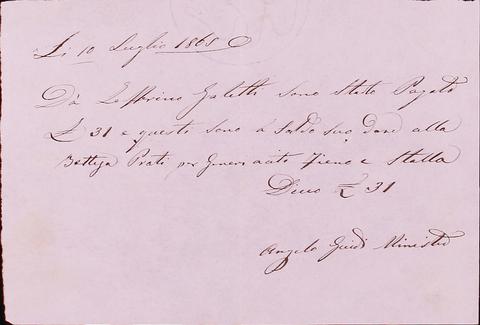 Li 10 Luglio 1868
Da Zeffirino Galetti sono stato Pagato
£ 31 e questi sono a Saldo suo dare alla
Bottega Prati per Fieno e Stalla
Dico £ 31
Angelo Guidi Ministro